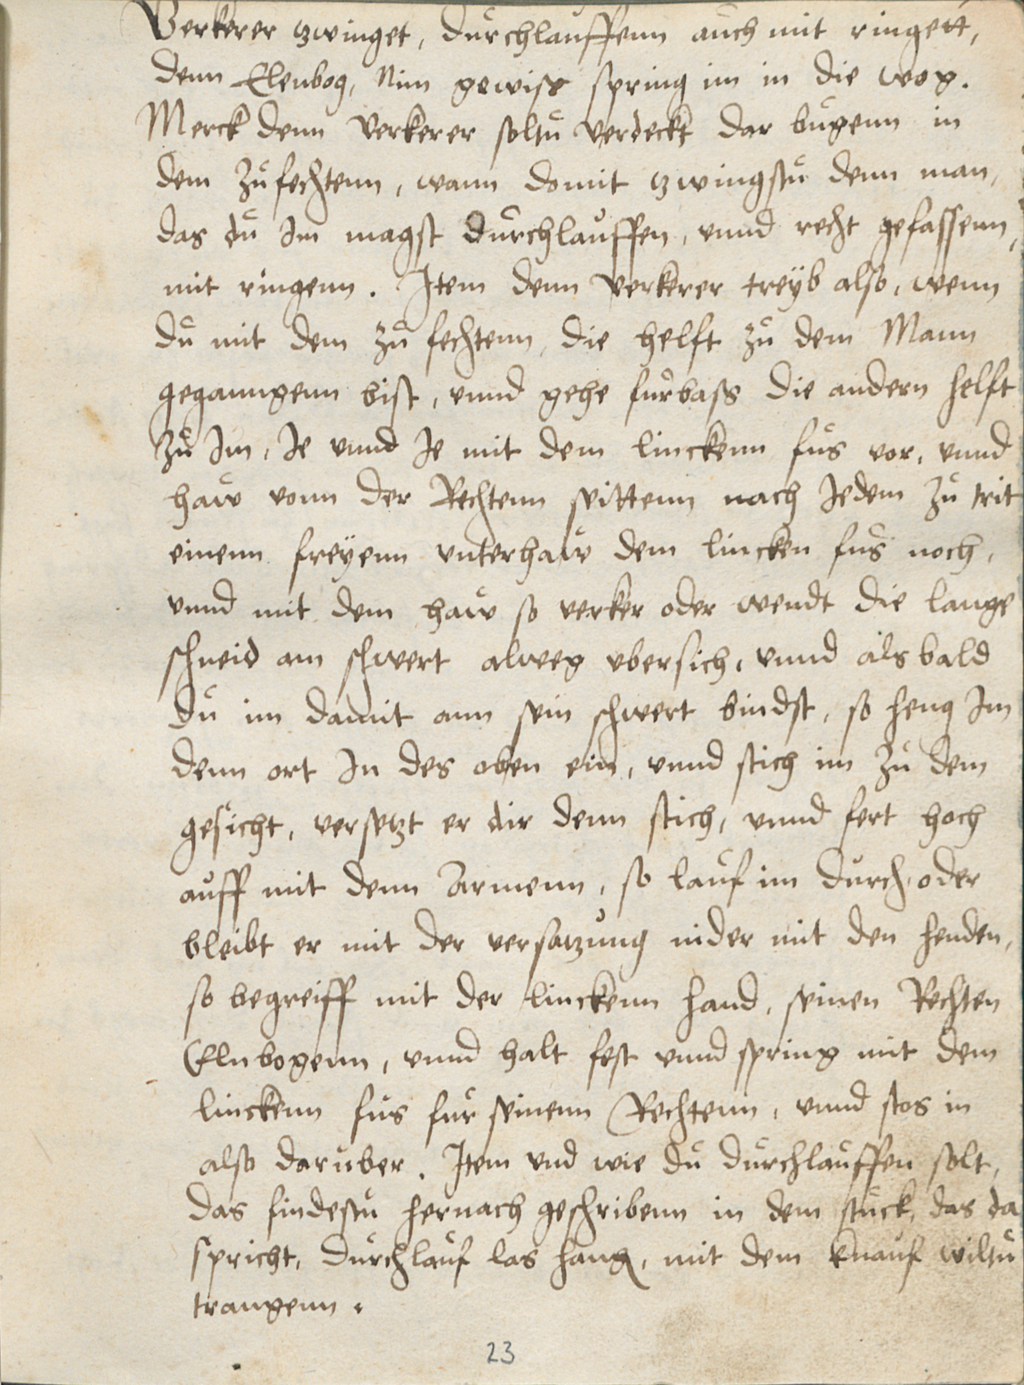 Verkerer zwinget, durchlauffenn auch mit ringett,
denn Elenbog, Nim gewiss spring im in die wog.
Merck denn Verkerer soltu verdeckt dar bugenn in
dem zufechtenn, wann domit zwingstu denn man,
das du Im magst durchlauffen, vnnd recht gefassenn,
mit ringenn. Item denn Verkerer treyb also, wenn
du mit dem zu fechtenn, die helft zu dem Mann
geganngenn bist, vnnd gehe furbass die andern helft
zu Im, Je vnnd Je mit dem linckenn fus vor, vnnd
haw vonn der Rechtenn seittenn nach Jedem zu trit
einenn freyenn vnterhaw dem lincken fus noch,
vnnd mit dem haw so verker oder wendt die lange
schneid am schwert alweg vbersich, vnnd als bald
du im damit ann sein schwert bindst, so heng Im
denn ort In des oben ein, vnnd stich im zu dem
gesicht, versetzt er dir denn stich, vnnd fert hoch
auff mit denn Armenn, so lauf im durch, oder
bleibt er mit der versatzung nider mit den henden,
so begreiff mit der linckenn hand, seinen Rechten
Elnbogenn, vnnd halt fest vnnd spring mit dem
linckenn fus fur seinenn Rechtenn, vnnd stos in
also daruber. Item vnd wie du durchlauffen solt,
das findestu hernach geschribenn in dem stuck, das da
spricht, durchlauf las hang, mit dem knauf wiltu
trangenn.
23